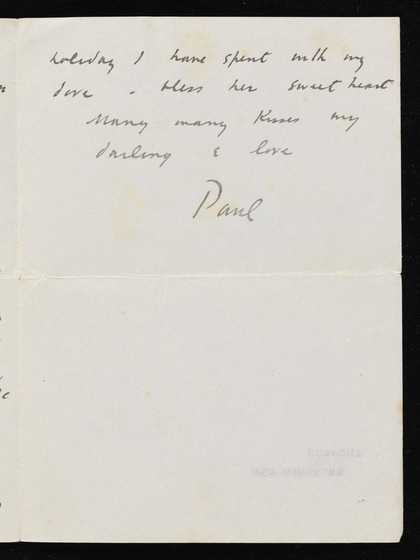 holiday I have spent with my
dove - bless her sweet heart
Many many Kisses my
darling & love
Paul